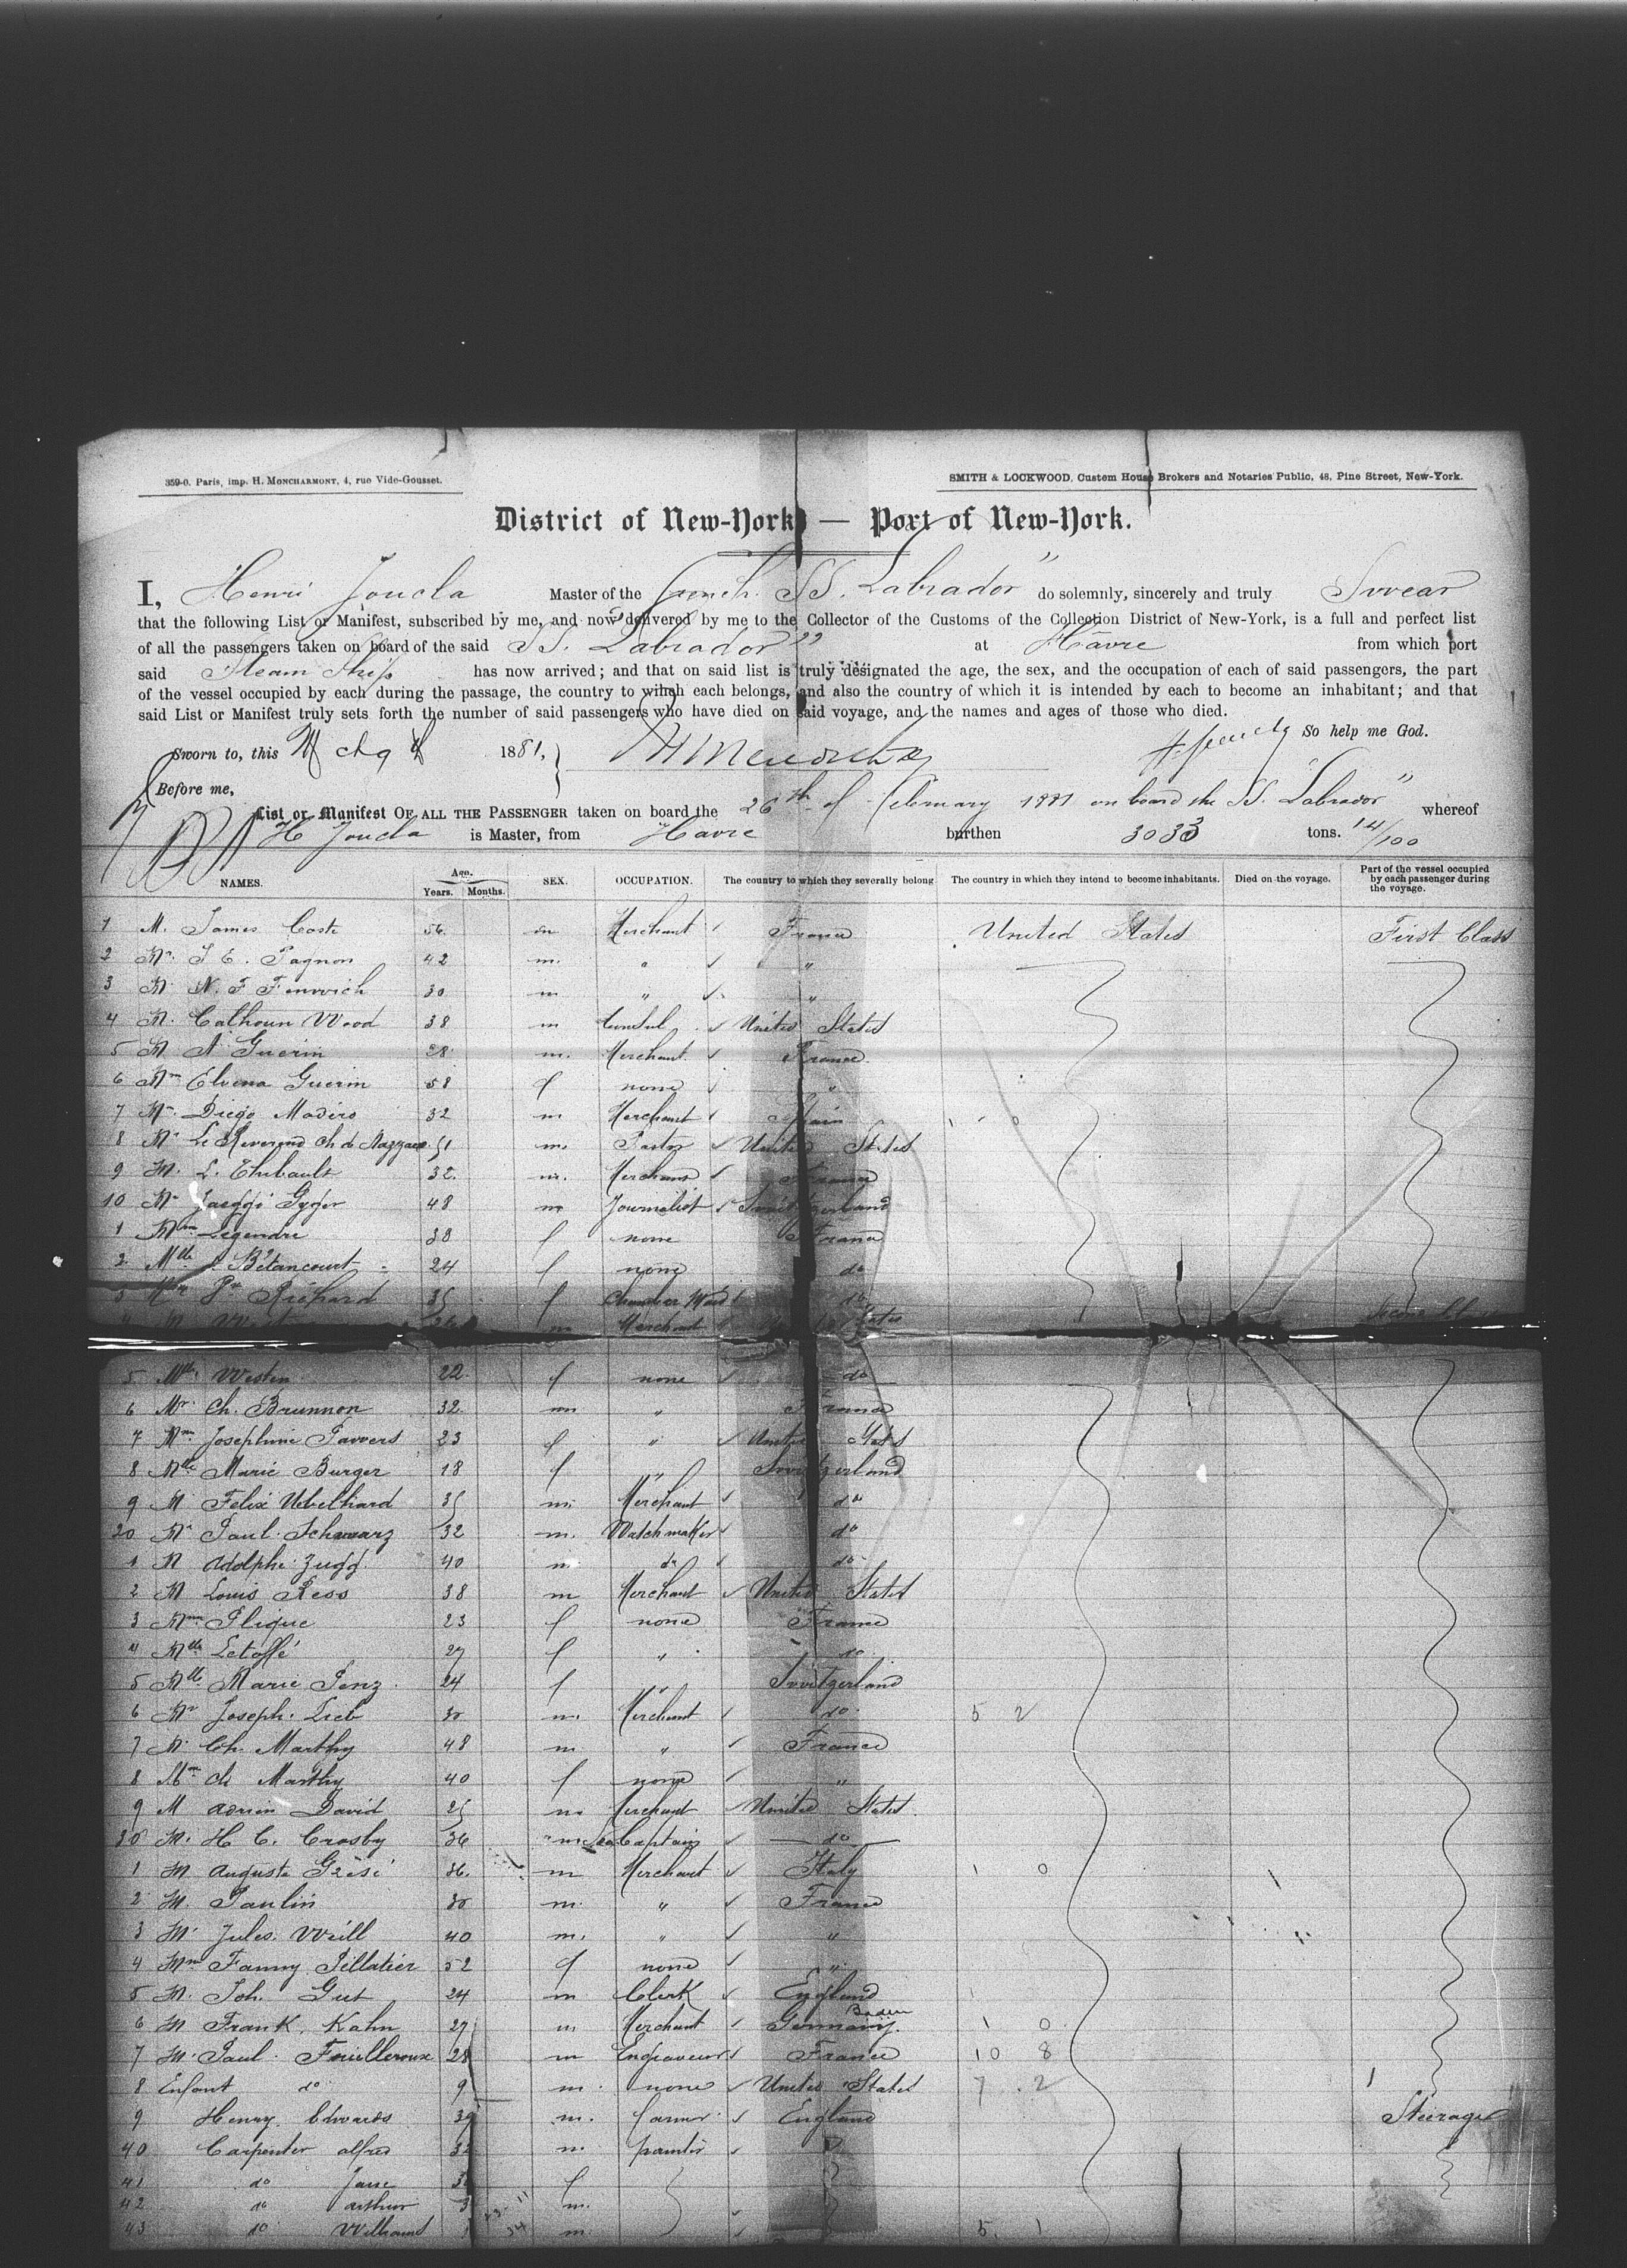 359-0. Paris, imp. H. MONCHARMONT, 4, rue Vide-Gousset.
SMITH & LOCKWOOD, Custom House Brokers and Notaries Public, 48, Pine Street, New-York.
District of New-York — Port of New-York.
I, Henri Joucla Master of the French SS. Labrador" do solemnly, sincerely and truly Swear
that the following List or Manifest, subscribed by me, and now delivered by me to the Collector of the Customs of the Collection District of New-York, is a full and perfect list
of all the passengers taken on board of the said SS. Labrador" at Hâvre from which port
said Steam Ship has now arrived; and that on said list is truly designated the age, the sex, and the occupation of each of said passengers, the part
of the vessel occupied by each during the passage, the country to wihch each belongs, and also the country of which it is intended by each to become an inhabitant; and that
said List or Manifest truly sets forth the number of said passengers who have died on said voyage, and the names and ages of those who died.
So help me God.
Sworn to, this Mch 9 1881,
Before me,
List or Manifest OF ALL THE PASSENGER taken on board the 26th of February 1881 on board the SS. "Labrador" whereof
H Joucla is Master, from Havre burthen 3033 tons. 14/100
NAMES. Age. Years. Months. SEX. OCCUPATION. The country to which they severally belong The country in which they intend to become inhabitants. Died on the voyage. Part of the vessel occupied by each passenger during the voyage.
1 M. James Coste 56 m Merchant France United States First Class
2 Mr. J E. Pagnon 42 m. " "
3 M. N. F Fenwich 30 m " "
4 M. Calhoun Wood 38 m Consul United States
5 M. A Guerin 28 m. Merchant France
6 Mm Elvena Guerin 58 f none "
7 Mr. Diego Madiro 32 m Merchant Spain 1 0
8 Mr Le Reverend Ch de 51 m. Pastor United States
9 M. L. Thibault 32. m. Merchant France
10 Mr Jaeggi Gyger 48 m Journalist Switzerland
1 Mm Legendre 38 f none France
2 Mlle Bétancourt 24 f none do
3 Mm Richard 35 f Chamber Maid do
4 M. 26 m Merchant United States Second Class
5 Mlle Westin 22 f none do
6 Mr. Ch. Brunnon 32 m " France
7 Mm Josephine Pawers 23 f " United States
8 Mlle Marie Burger 18 f " Switzerland
9 M Felix Uebelhard 35 m. Merchant do
20 Mr Paul Schwarz 32 m. Watchmaker do
1 M Adolphe Zugg 40 m do do
2 M Louis Ress 38 m Merchant United States
3 Mm Plique 23 f none France
4 Mlle Letoffé 27 f " do
5 Mlle Marie Penz 24 f " Switzerland
6 Mr Joseph. Lieb 30 m. Merchant do 5 2
7 M. Ch. Marthy 48 m " France
8 Mm Ch Marthy 40 f none "
9 M Adrien David 25 m Merchant United States
30 M. H C. Crosby 36 m Sea Captain do
1 M Auguste Grési 36. m Merchant Italy 1 0
2 M. Paulin 30 m. " France
3 M. Jules. Weill 40 m. " "
4 Mm Fanny Pellatier 52 f none "
5 M. Joh. Gut 24 m Clerk England
6 M Frank. Kahn 27 m Merchant Germany. Baden 1 0
7 M. Paul Fouilleroux 28 m Engraveur France 10 8
8 Enfant do 9 m. none United States 7 2 1
9 Henry Edwards 39 m. farmer England Steerage
40 Carpenter alfred 32 m. painter
41 do Jane f
42 do arthur 3 m.
43 do William 1 m. 5. 1